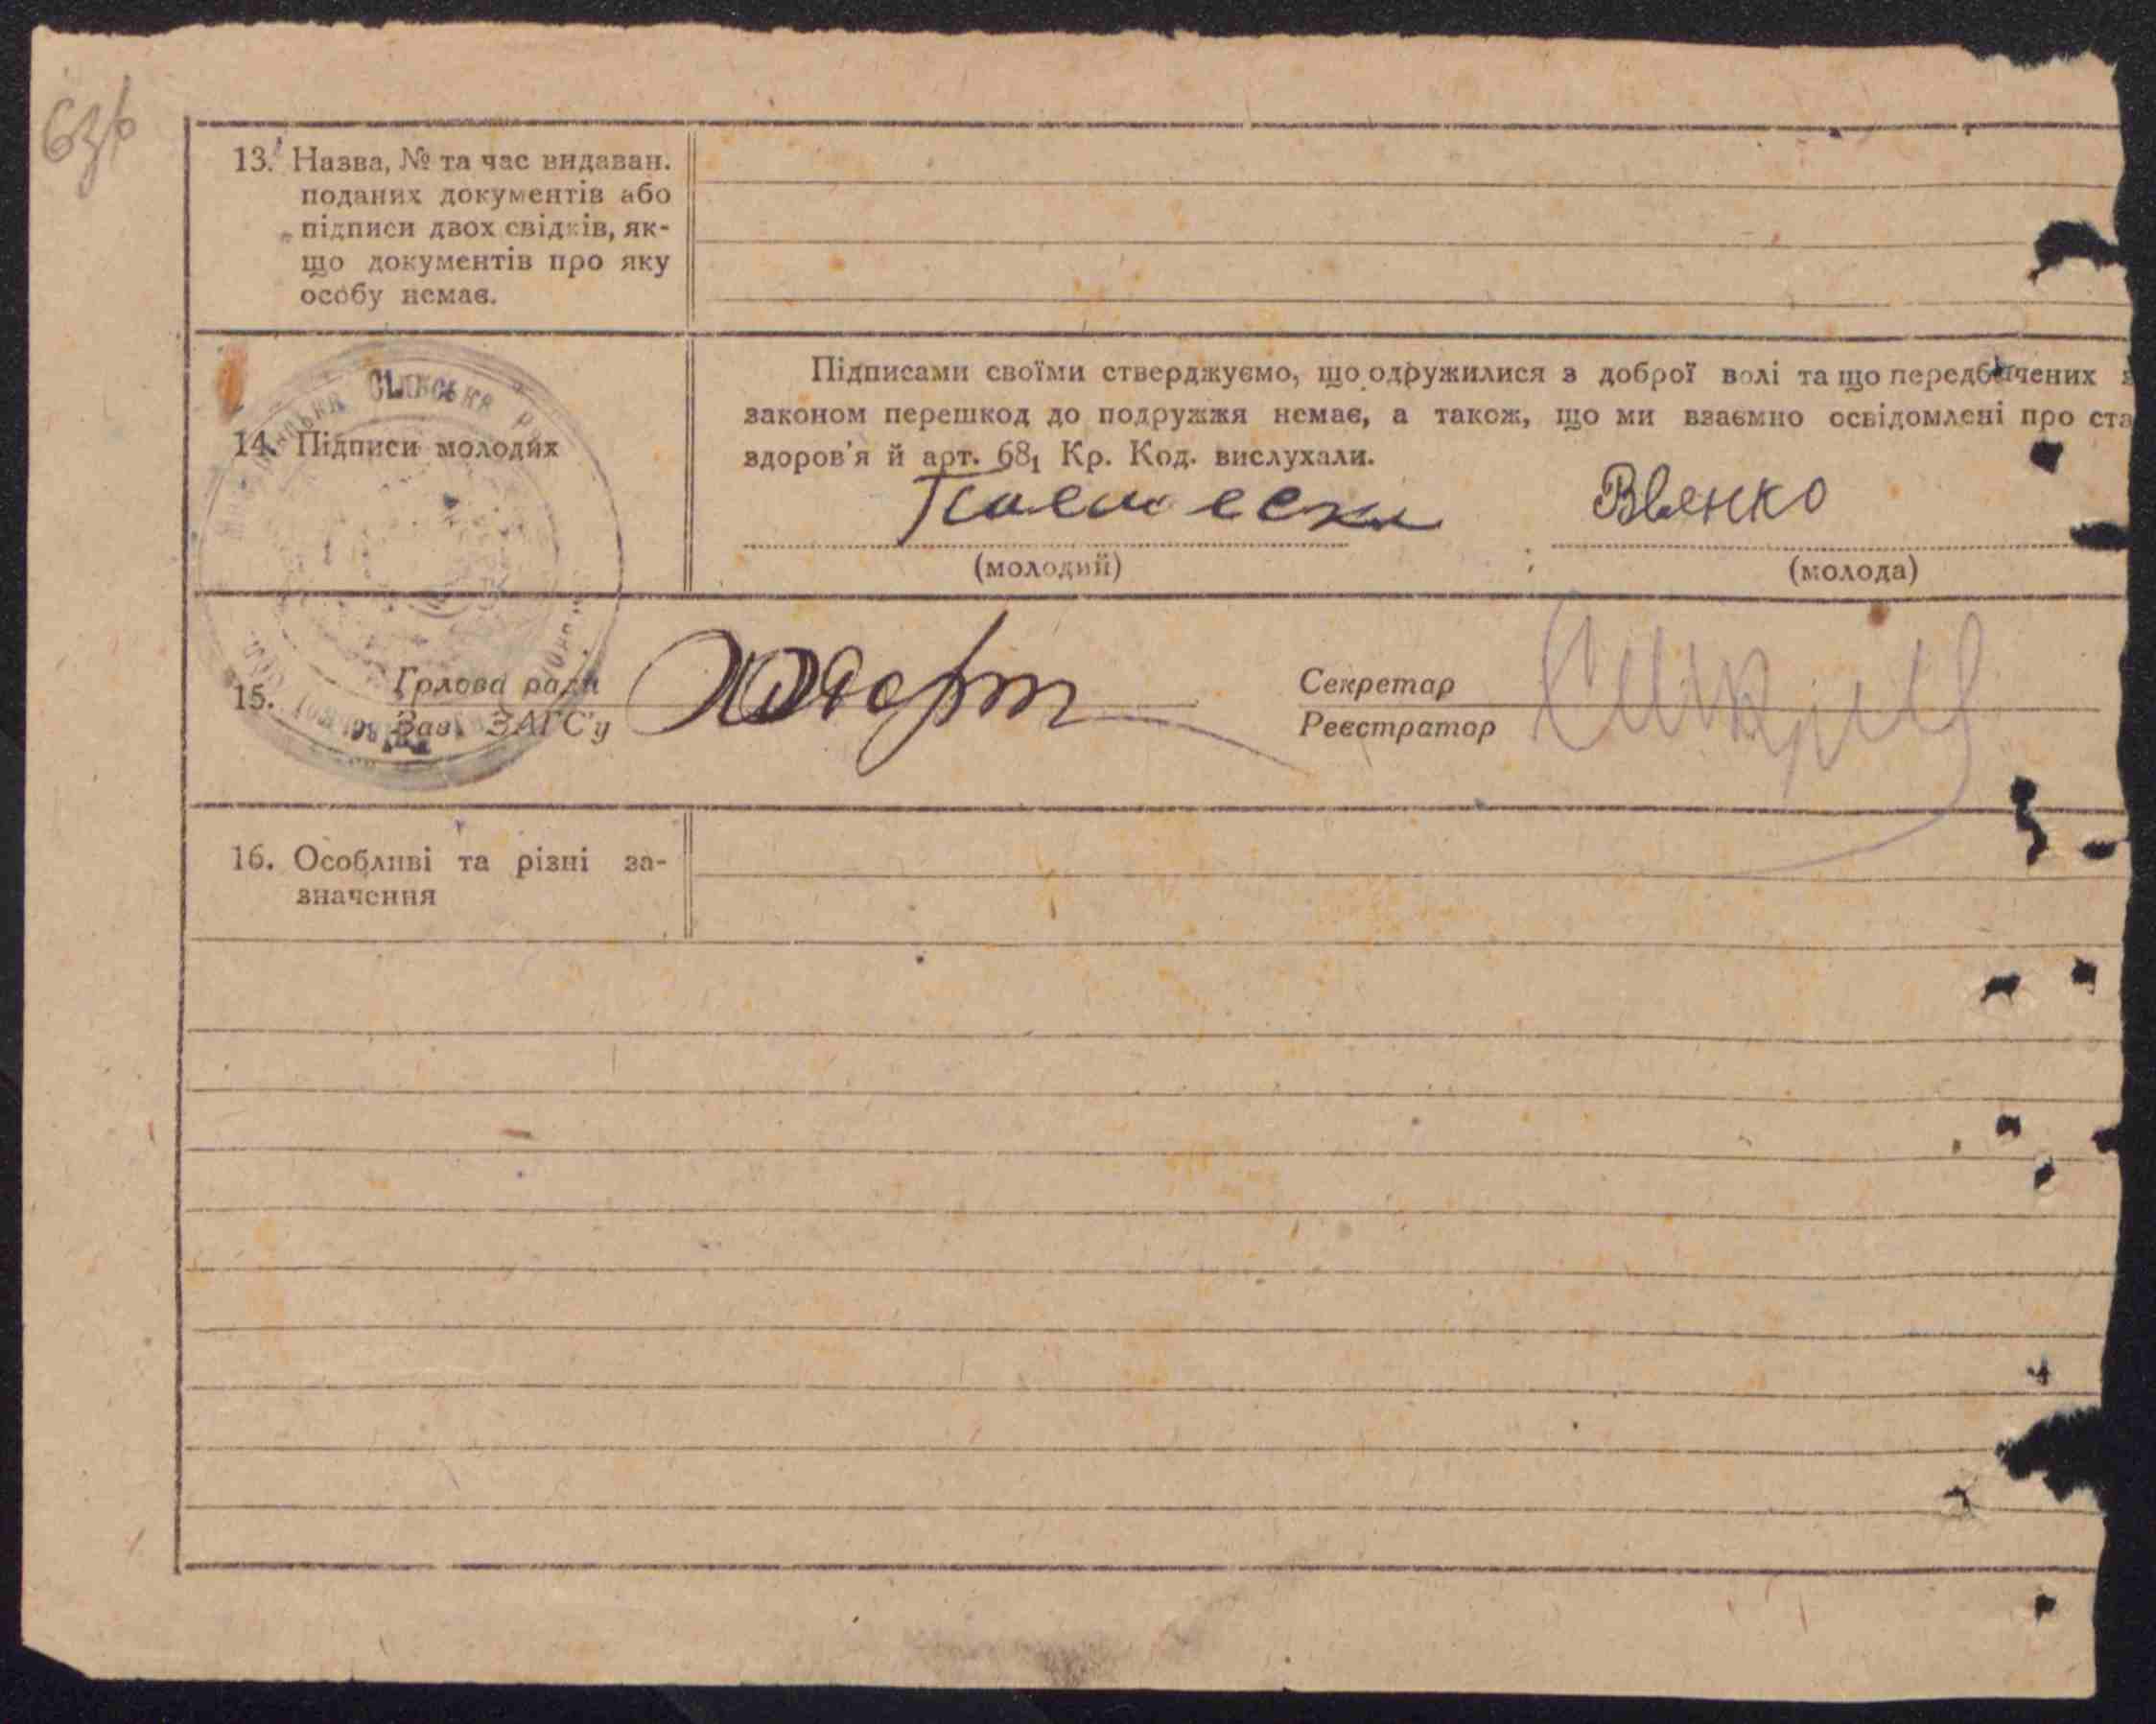 13. Назва, № та час видаван.
поданих документів або
підписи двох свідків, як-
що документів про яку
особу немає.
СІЛЬСЬКА
14. Підписи молодих
Підписами своїми стверджуємо, що одружилися з доброї волі та що передбачених з
законом перешкод до подружжя немає, а також, що ми взаємно освідомлені про ста
здоров'я й арт. 68₁ Кр. Код. вислухали.
(молодий)
(молода)
15.
Голова ради
Зав. ЗАГС'у
Секретар
Реєстратор
16. Особливі та різні за-
значення